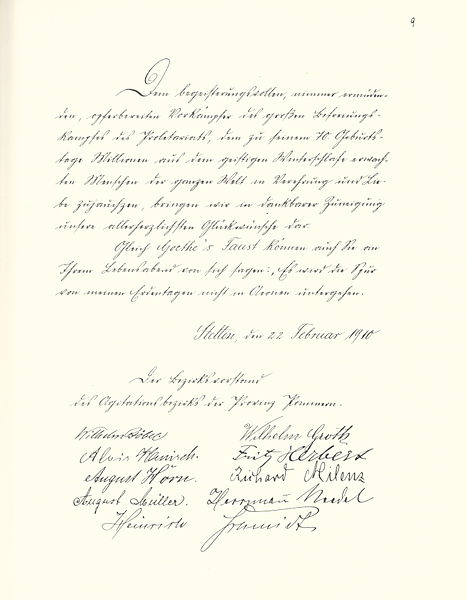 9
Dem begeisterungsvollen, nimmer ermüden-
den, opferbereiten Vorkämpfer des großen Befreiungs-
kampfes des Proletariats, dem zu seinem 70. Geburts-
tage Millionen aus dem geistigen Winterschlafe erwach-
ten Menschen der ganzen Welt in Verehrung und Lie-
be zujauchzen, bringen wir in dankbarer Zuneigung
unsere allerherzlichsten Glückwünsche dar.
Gleich Goethe's Faust können auch Sie an
Ihrem Lebensabend von sich sagen: „Es wird die Spur
von meinen Erdentagen nicht in Aeonen untergehen.
Stettin, den 22 Februar 1910
Der Bezirksvorstand
des Agitationsbezirks der Provinz Pommern.
Wilhelm Wilhelm Groth
Alois Hänisch. Fritz Herbert
August Horn. Richard Milenz
August Müller. Herrmann
Heinrich Schmidt